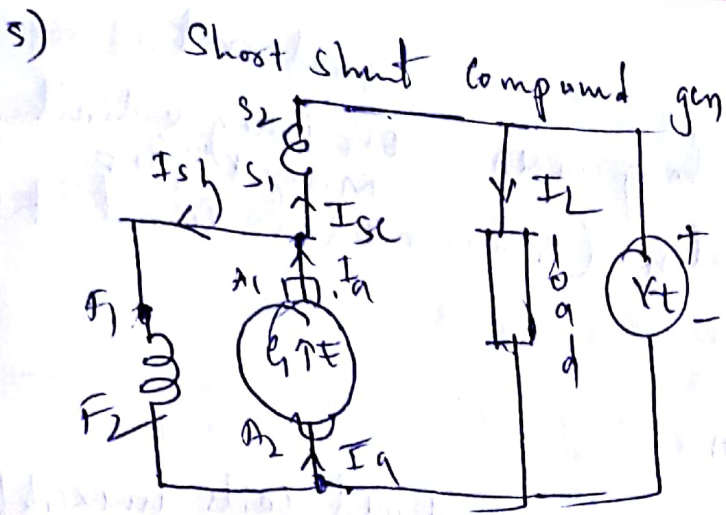 5)
Short shunt compound gen
S2
S1
Ish
Isc
IL
A1
Ia
F1
G ↑E
load
+
Vt
-
F2
A2
Ia